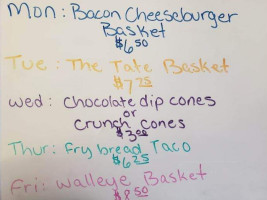 Mon: Bacon Cheeseburger
Basket
$6.50
Tue: The Tate Basket
$7.25
Wed: Chocolate dip cones
or
Crunch cones
$3.00
Thur: Fry bread Taco
$6.25
Fri: Walleye Basket
$8.50